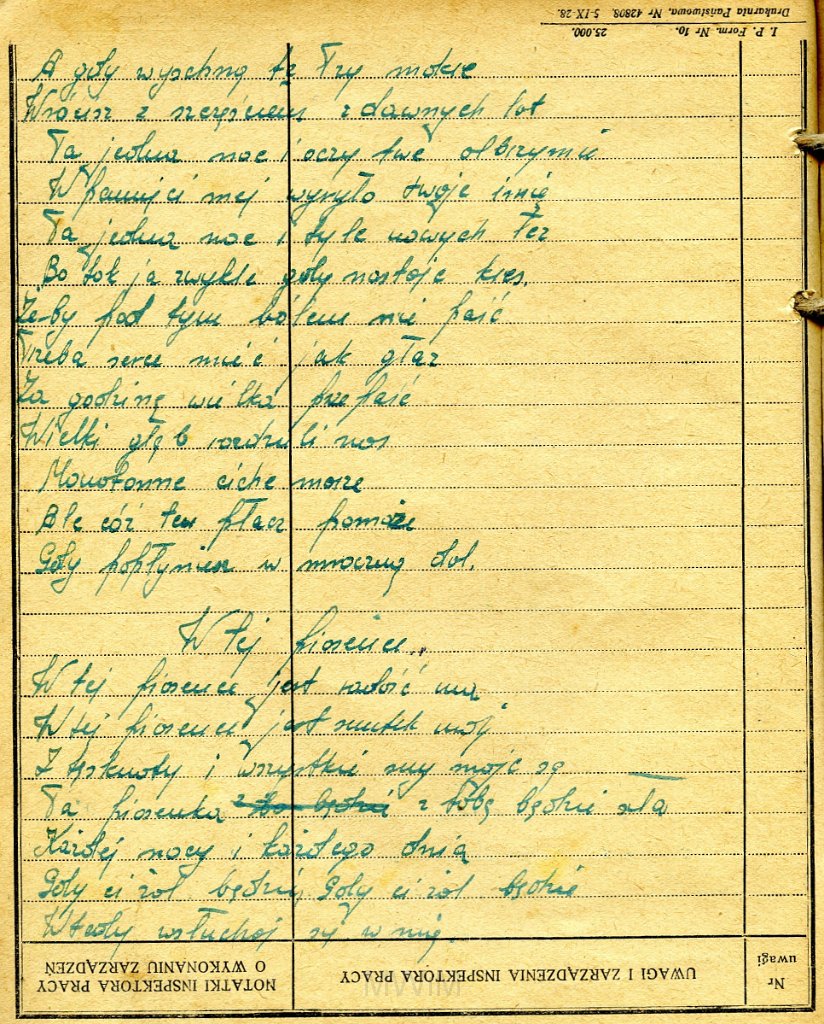 Drukarnia Państwowa, Nr 42808. 5-IX-28.
I. P. Form. Nr 10. 25.000.
A gdy wyschną te łzy mokre
Wrócisz z szczęściem z dawnych lat
Ta jedna noc i oczy twe olbrzymie
W pamięci mej wyryło twoje imię
Ta jedna noc i tyle nowych łez
Bo tak ja zwykle gdy nastoje kres.
Że-by pod tym bólem nie paść
Trzeba serce mieć jak głaz
Za godzinę wielka przepaść
Wielki głęb rozdzieli nas
Monotonne ciche morze
Ale cóż ten płacz pomoże
Gdy popłyniesz w mroczną dal.
W tej piosence..
W tej piosence jest radość ma
W tej piosence jest smutek mój
Z tęsknoty i wszystkie sny moje są
Ta piosenka z tobą będzie szła
Każdej nocy i każdego dnia
Gdy ci żal będzie, Gdy ci żal będzie
Wtedy wsłuchaj się w nią.
NOTATKI INSPEKTORA PRACY O WYKONANIU ZARZĄDZEŃ
UWAGI I ZARZĄDZENIA INSPEKTORA PRACY
Nr uwagi
MWM